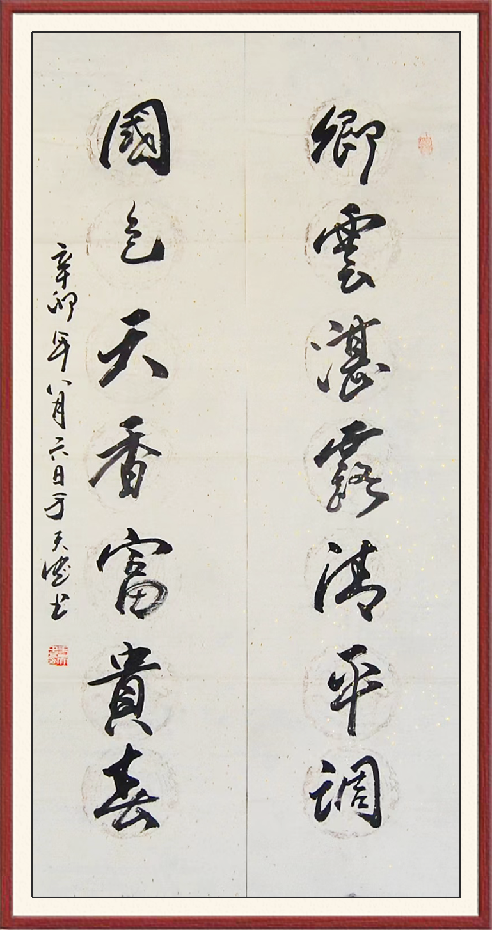 卿雲湛露清平調
國色天香富貴春
辛卯年八月六日于天書